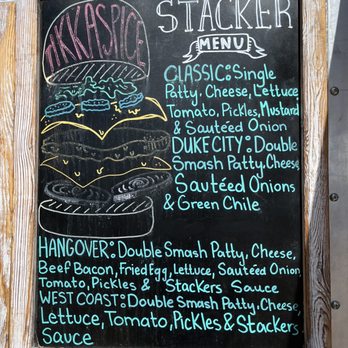 AKKASPICE
STACKER
MENU
CLASSIC: Single
Patty, Cheese, Lettuce
Tomato, Pickles, Mustard
& Sautéed Onion
DUKE CITY: Double
Smash Patty, Cheese
Sautéed Onions
& Green Chile
HANGOVER: Double Smash Patty, Cheese,
Beef Bacon, Fried Egg, Lettuce, Sauteéd Onion
Tomato, Pickles & Stackers Sauce
WEST COAST: Double Smash Patty, Cheese,
Lettuce, Tomato, Pickles & Stackers
Sauce